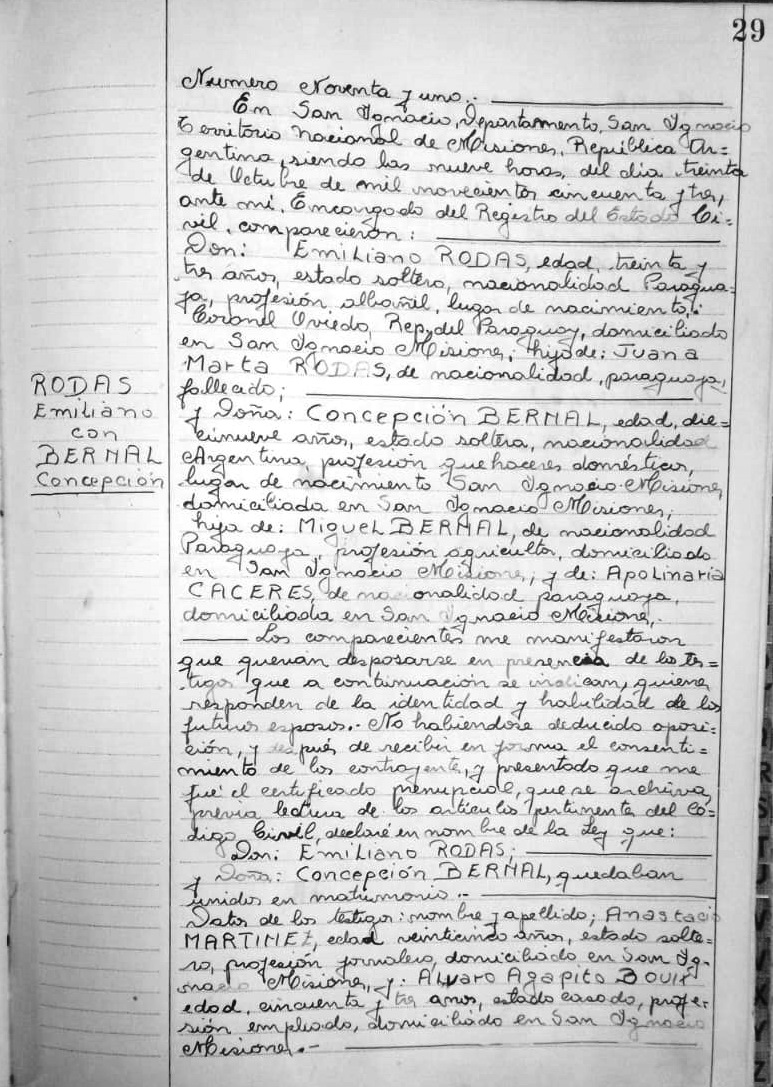 29
Numero Noventa y uno.-
En San Ygnacio, Departamento, San Ygnacio
Territorio Nacional de Misiones, República Ar=
gentina, siendo las nueve horas, del día treinta
de Octubre de mil novecientos cincuenta y tres,
ante mi, Encargado del Registro del Estado Ci=
vil, comparecieron:
Don: Emiliano RODAS, edad, treinta y
tres años, estado soltero, nacionalidad Paragua=
ya, profesión albañil, lugar de nacimiento,:
Coronel Oviedo, Rep. del Paraguay, domiciliado
en San Ygnacio Misiones; hijo de: Juana
Marta RODAS, de nacionalidad, paraguaya,
fallecida;
y Doña: Concepción BERNAL, edad, die=
cinueve años, estado soltera, nacionalidad
Argentina, profesión quehaceres domésticos,
lugar de nacimiento San Ygnacio-Misiones,
domiciliada en San Ygnacio Misiones,
hija de: Miguel BERNAL, de nacionalidad
Paraguaya, profesión agricultor, domiciliado
en San Ygnacio Misiones, y de: Apolinaria
CACERES, de nacionalidad paraguaya,
domiciliada en San Ygnacio Misiones,.
Los comparecientes me manifestaron
que querian desposarse en presencia de los tes=
tigos que a continuación se indican, quienes
responden de la identidad y habilidad de los
futuros esposos.- No habiéndose deducido oposi=
ción, y después de recibir en forma el consenti=
miento de los contrayentes, y presentado que me
fué el certificado prenupcial, que se archiva,
previa lectura de los artículos pertinentes del Có=
digo Civil, declaré en nombre de la Ley que:
Don: Emiliano RODAS;
y Doña: Concepción BERNAL, quedaban
unidos en matrimonio.-
Datos de los testigos: nombre y apellido; Anastacio
MARTINEZ, edad veinticinco años, estado solte=
ro, profesión jornalero, domiciliado en San Yg-
nacio Misiones, y: Alvaro Agapito
edad, cincuenta y tres años, estado casado, profe-
sión empleado, domiciliado en San Ygnacio
Misiones.-
RODAS
Emiliano
con
BERNAL
Concepción
R
S
T
U
V
X
Y
Z